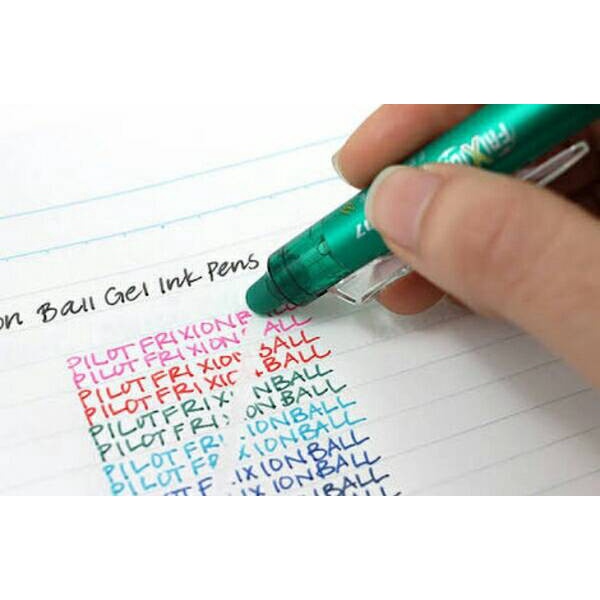 on Ball Gel Ink Pens
PILOT FRIXION B
PILOT FRIXION ALL
PILOT FRIXIO BALL
PILOT FRIXIO BALL
PILOT FRIX ON BALL
PILOT FRI ON BALL
PILOT FR IONBALL
PILOT F XIONBALL
T F IXIONBALL
LIXIONBALL
FRIXION
07